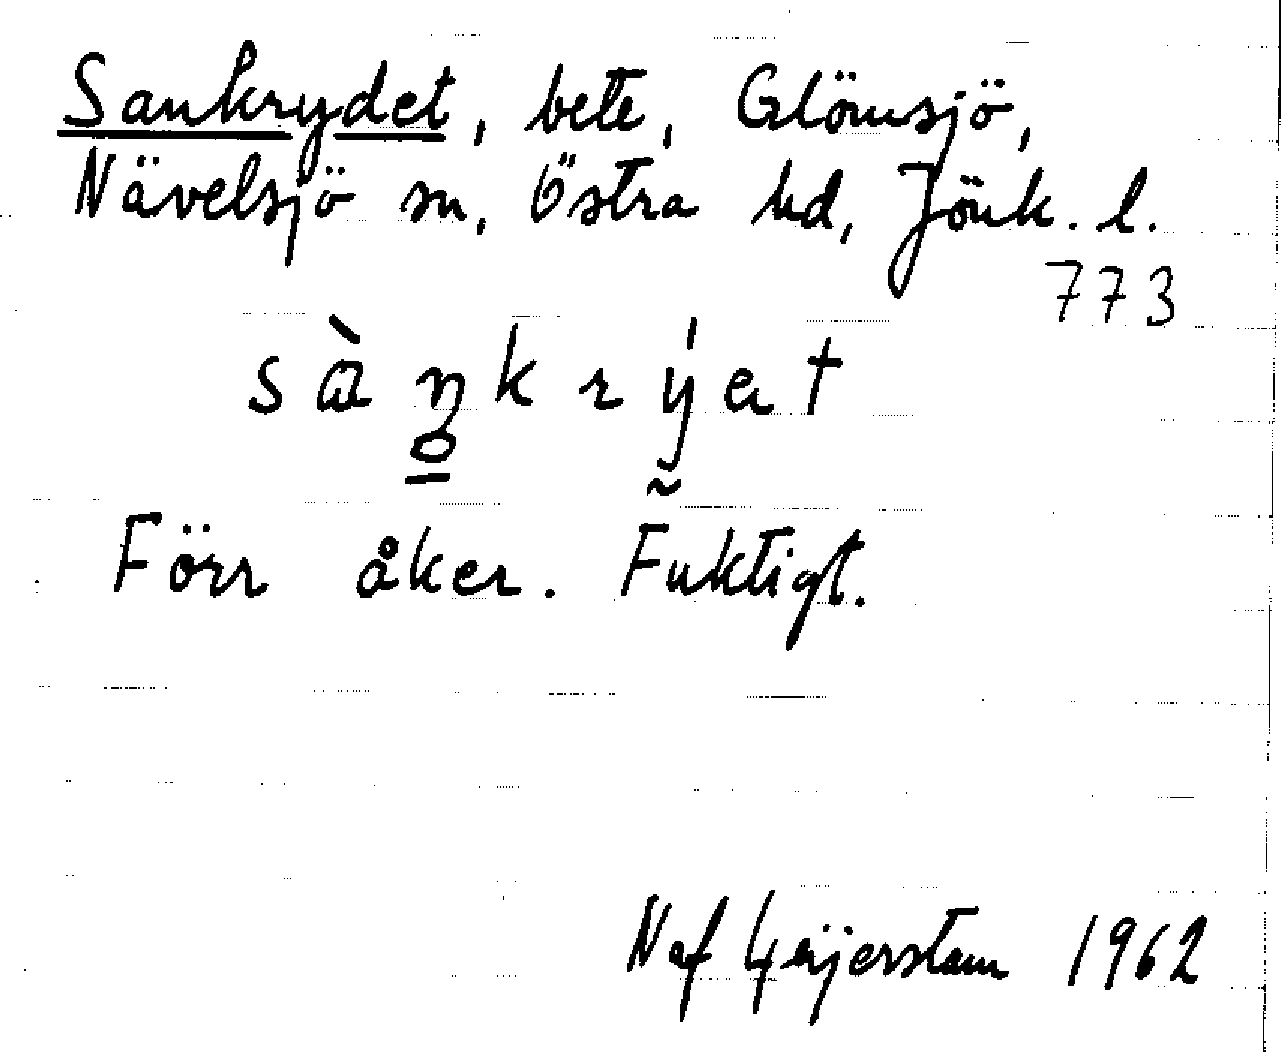 Sankrydet, bete, Glömsjö,
Nävelsjö sn, Östra hd, Jönk. l.
773
sàŋkrýet
Förr åker. Fuktigt.
N af Geijerstam 1962